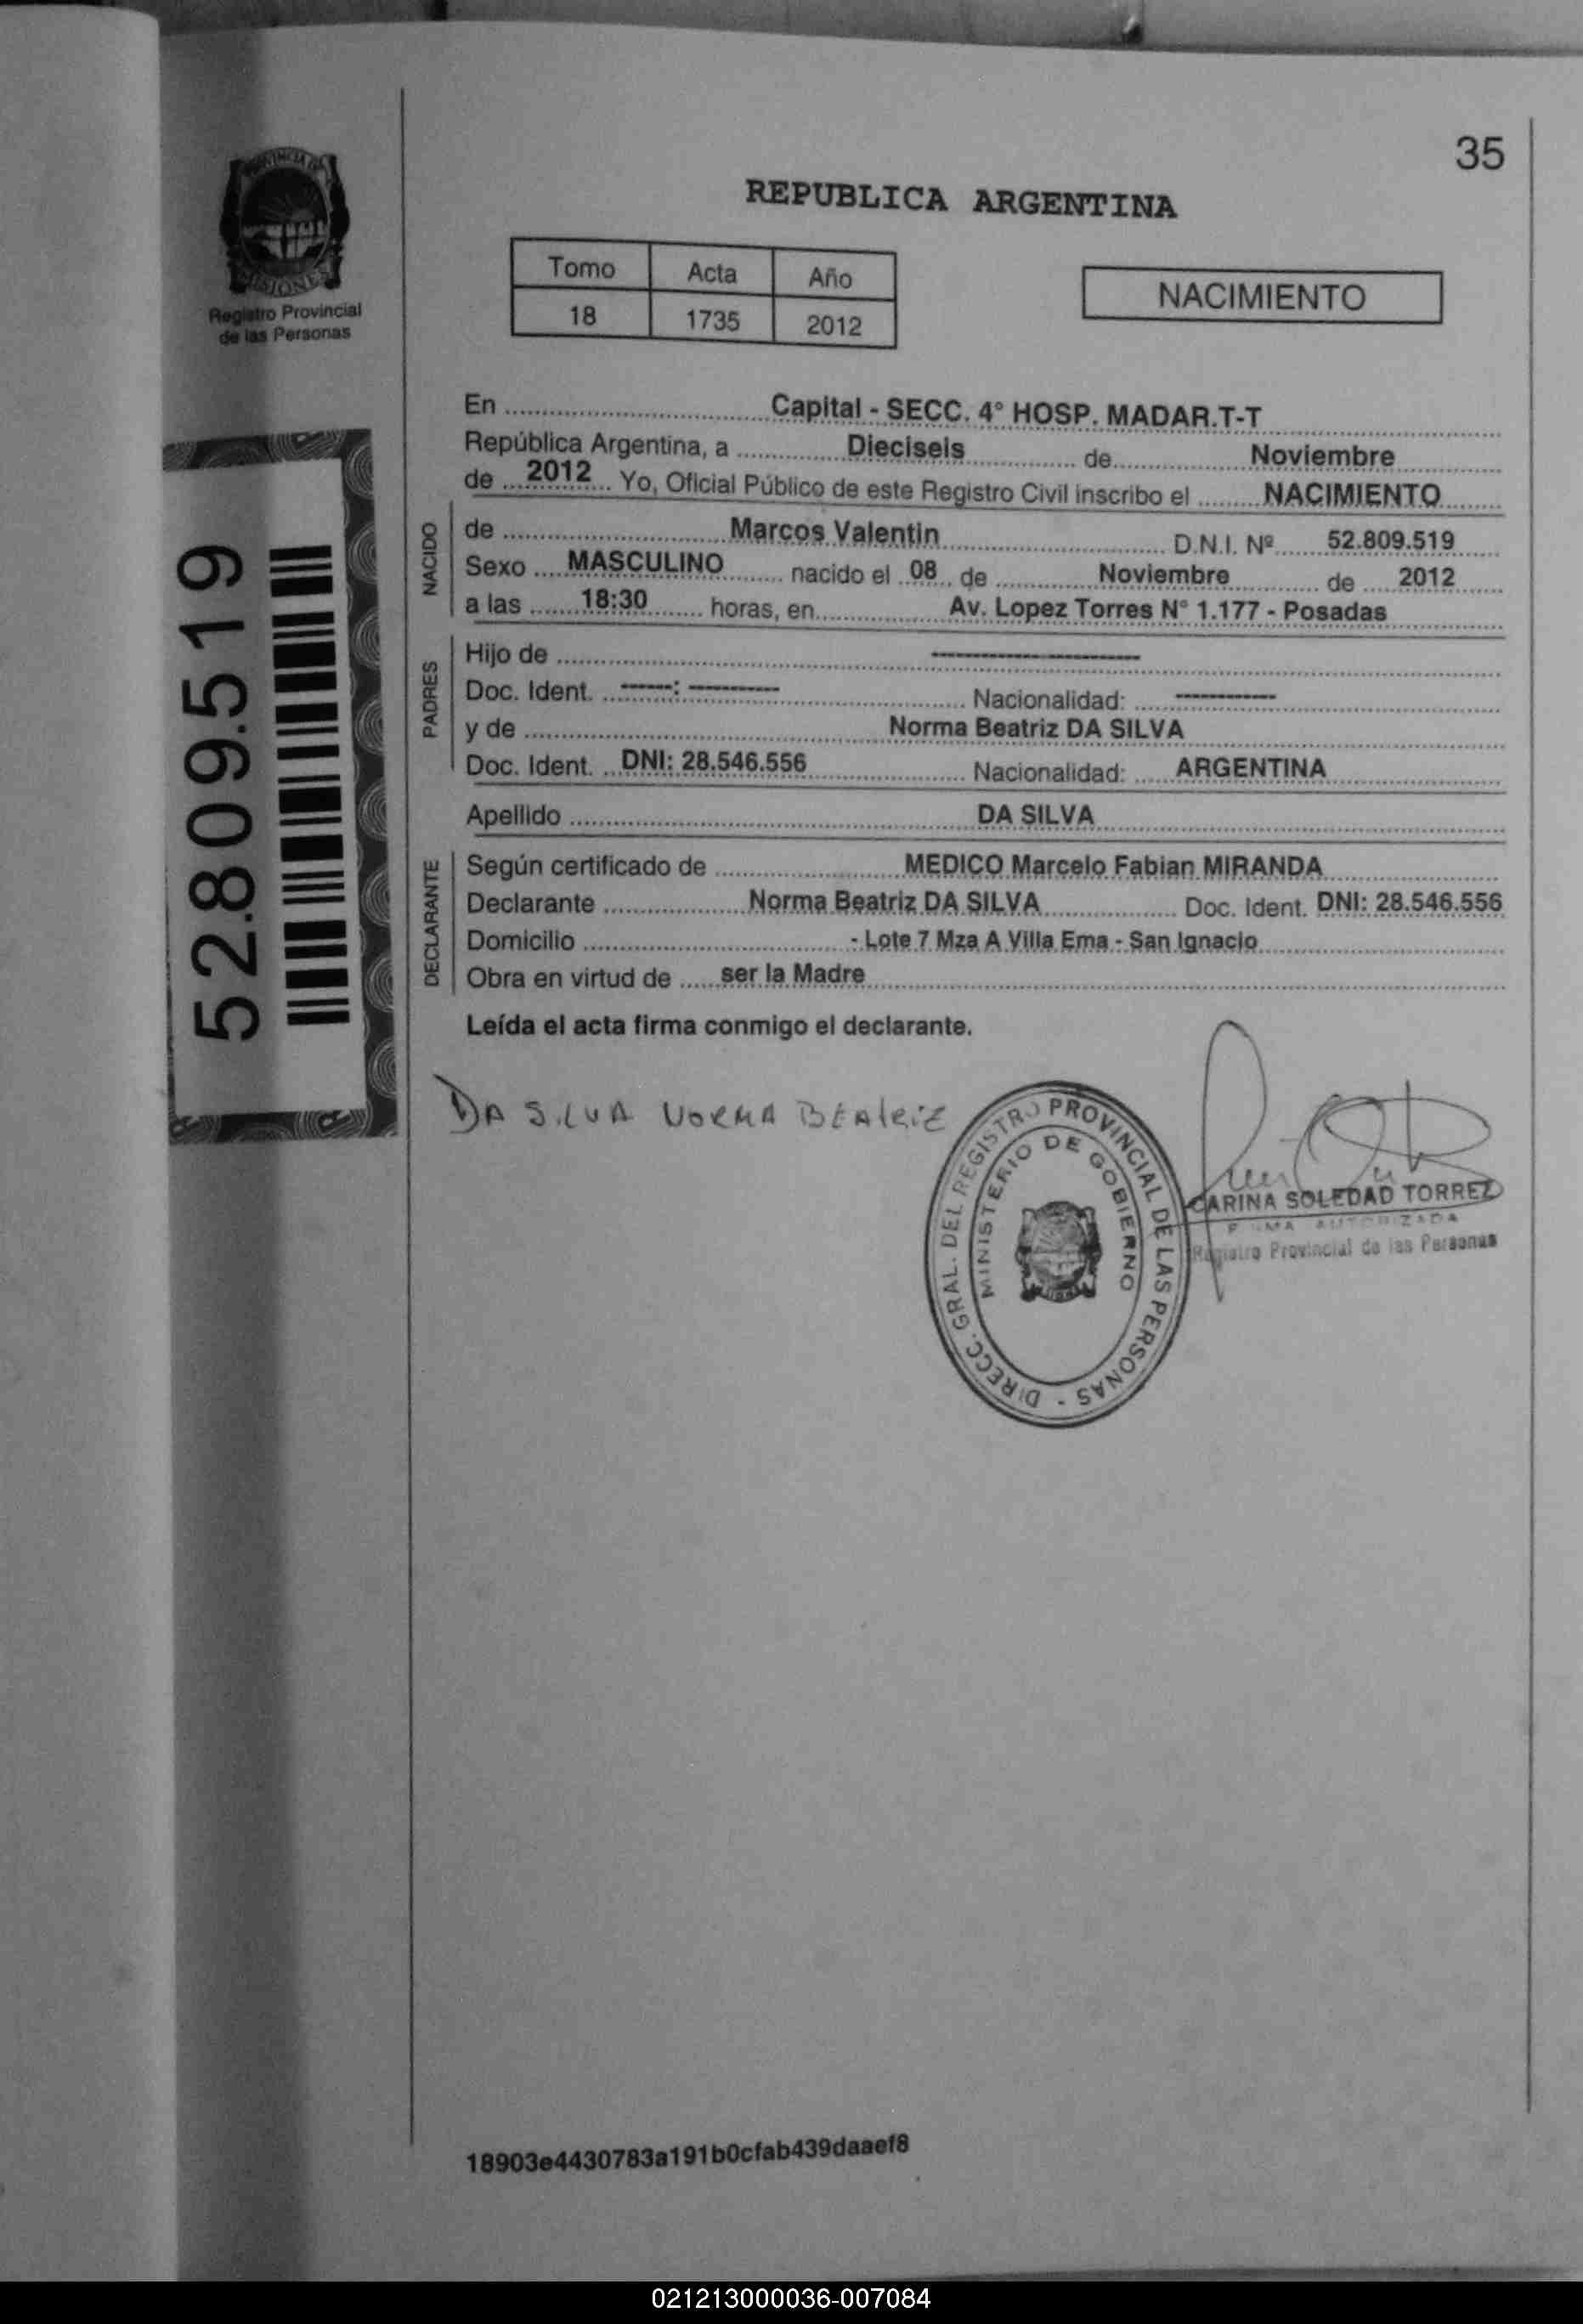 35
REPUBLICA ARGENTINA
PROVINCIA DE
MISIONES
Registro Provincial
de las Personas
Tomo Acta Año
18 1735 2012
NACIMIENTO
52.809.519
En Capital - SECC. 4° HOSP. MADAR.T-T
República Argentina, a Dieciseis de Noviembre
de 2012 Yo, Oficial Público de este Registro Civil inscribo el NACIMIENTO
NACIDO
de Marcos Valentin D.N.I. Nº 52.809.519
Sexo MASCULINO nacido el 08 de Noviembre de 2012
a las 18:30 horas, en Av. Lopez Torres N° 1.177 - Posadas
PADRES
Hijo de --------------------
Doc. Ident. -----: --------- Nacionalidad: ----------
y de Norma Beatriz DA SILVA
Doc. Ident. DNI: 28.546.556 Nacionalidad: ARGENTINA
Apellido DA SILVA
DECLARANTE
Según certificado de MEDICO Marcelo Fabian MIRANDA
Declarante Norma Beatriz DA SILVA Doc. Ident. DNI: 28.546.556
Domicilio - Lote 7 Mza A Villa Ema - San Ignacio
Obra en virtud de ser la Madre
Leída el acta firma conmigo el declarante.
DA SILVA NORMA BEAtRiZ
DIRECC. GRAL. DEL REGISTRO PROVINCIAL DE LAS PERSONAS -
MINISTERIO DE GOBIERNO
CARINA SOLEDAD TORREZ
FIRMA AUTORIZADA
Registro Provincial de las Personas
18903e4430783a191b0cfab439daaef8
021213000036-007084